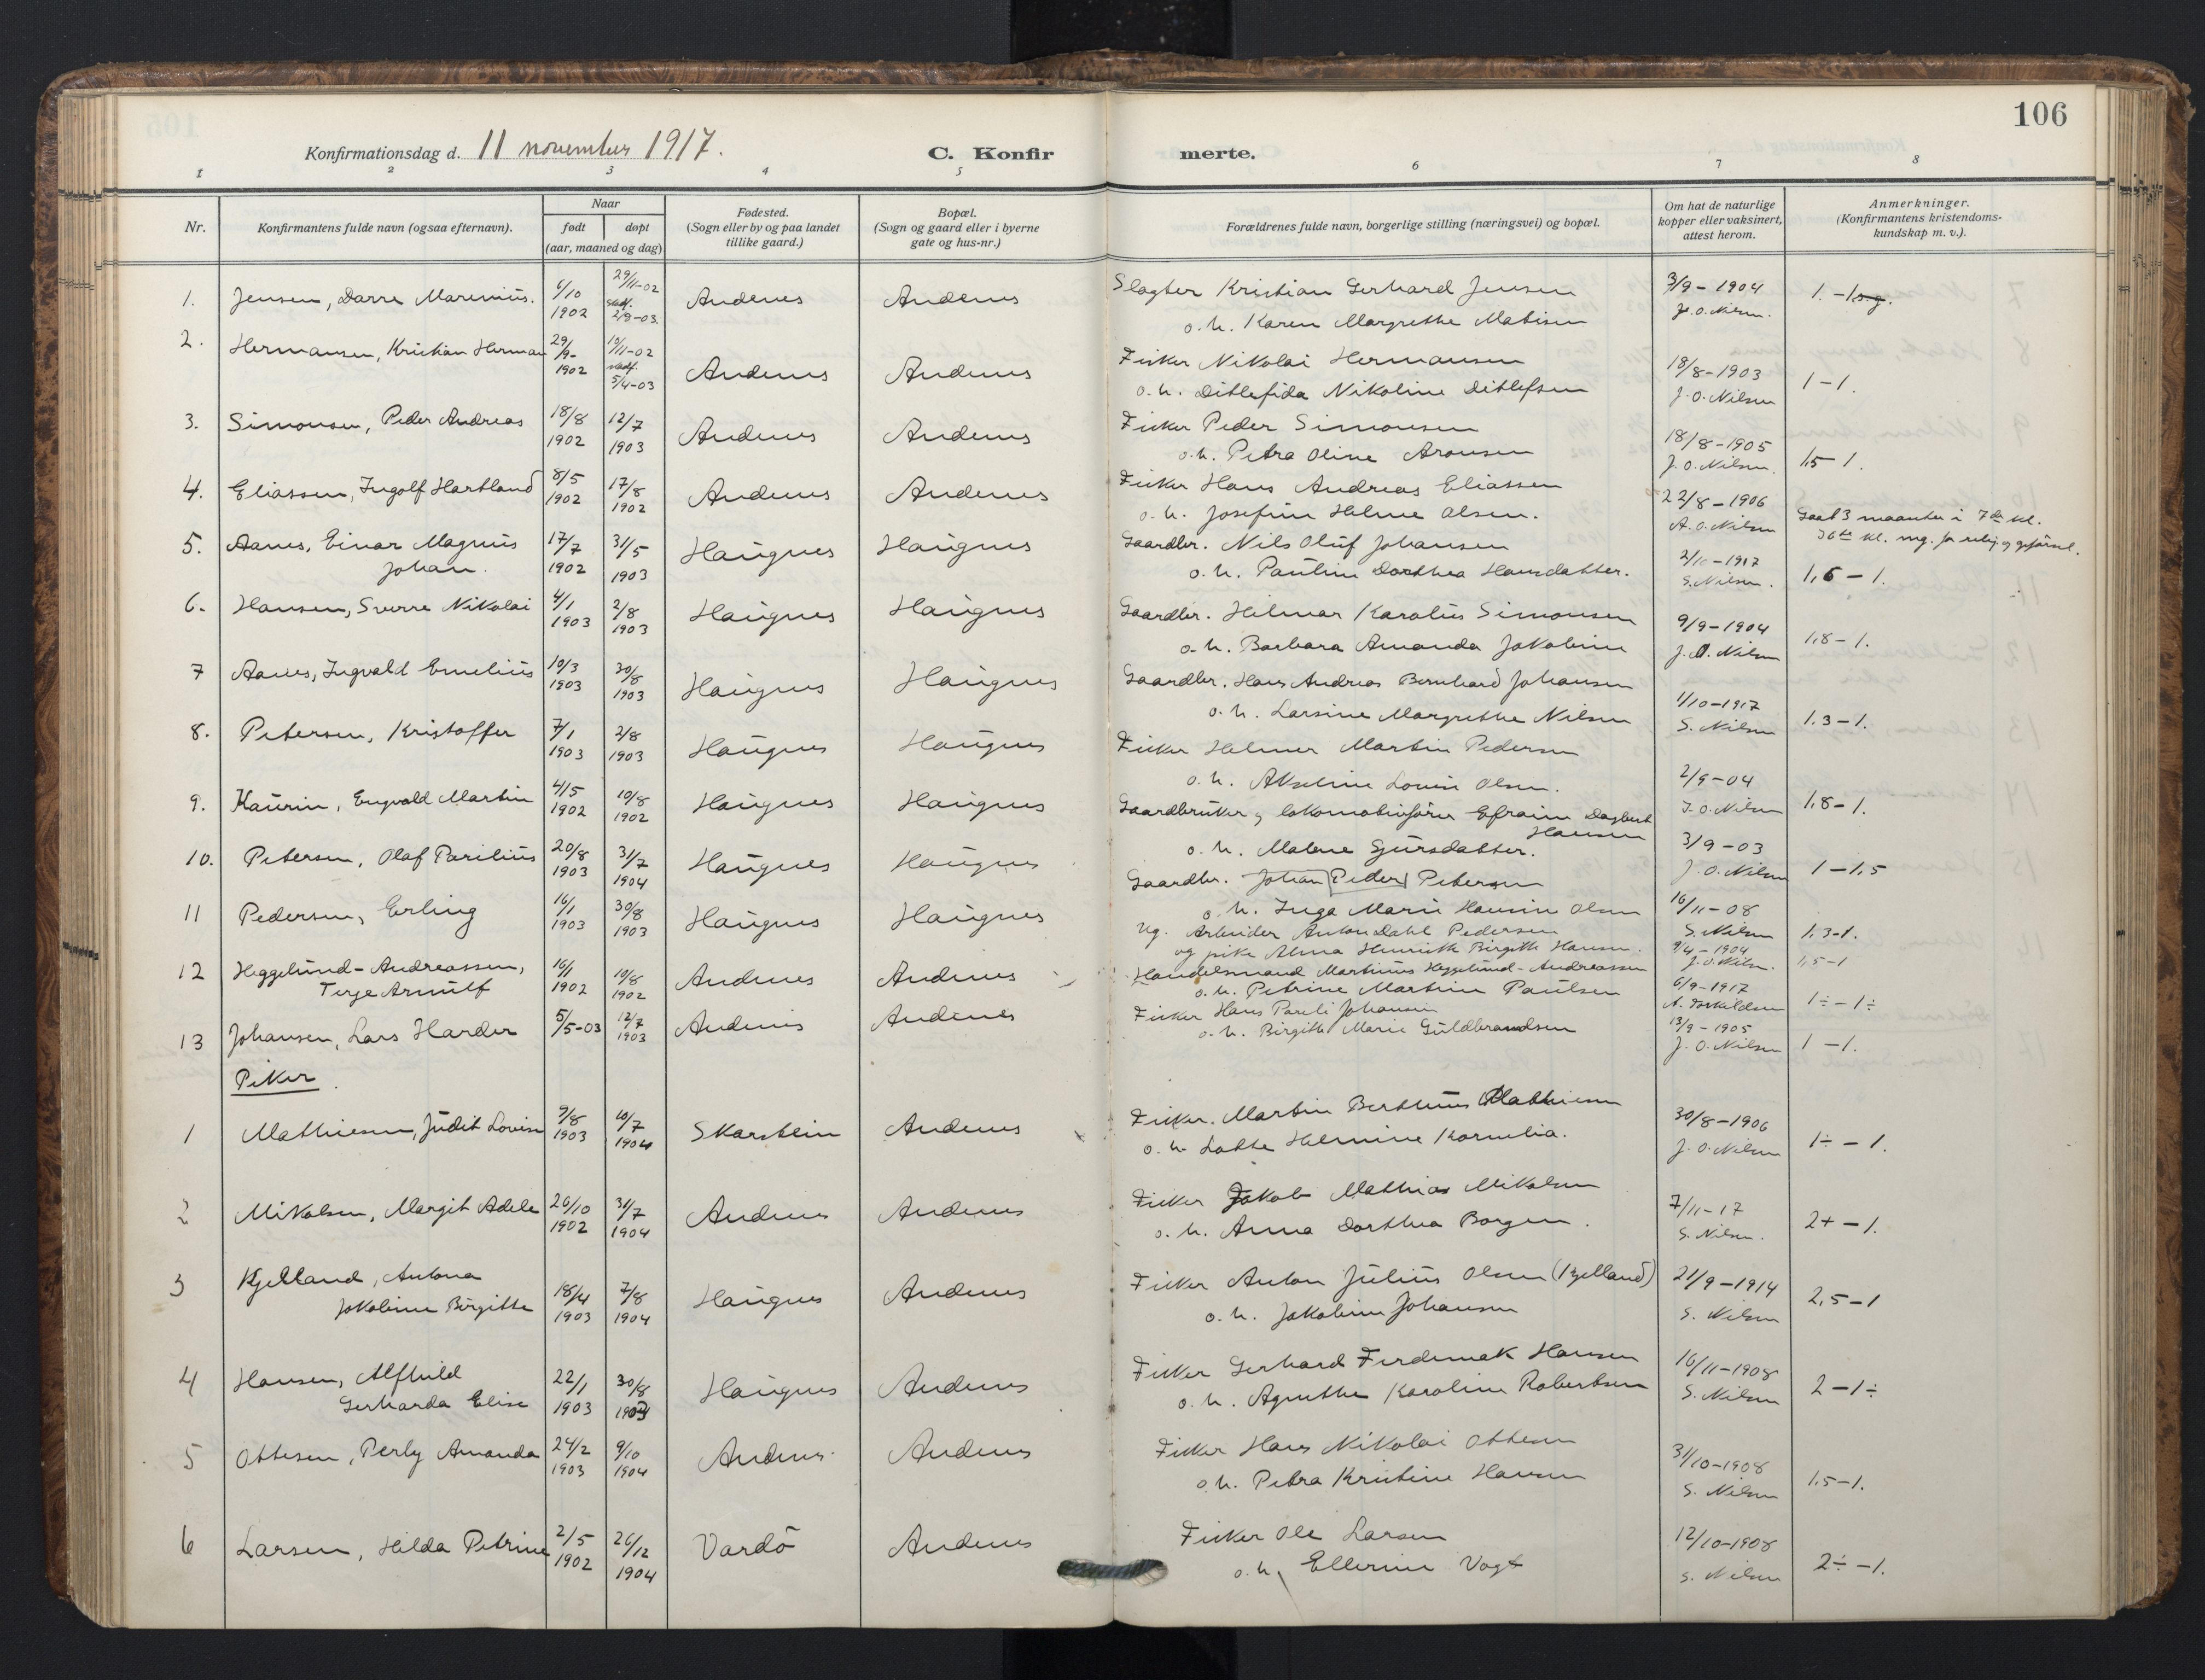 106
Konfirmationsdag d. 11 november 1917.
C. Konfirmerte.
1 2 3 4 5 6 7 8
Nr.
Konfirmantens fulde navn (ogsaa efternavn).
Naar
født døpt
(aar, maaned og dag)
Fødested.
(Sogn eller by og paa landet
tillike gaard.)
Bopæl.
(Sogn og gaard eller i byerne
gate og hus-nr.)
Forældrenes fulde navn, borgerlige stilling (næringsvei) og bopæl.
Om hat de naturlige
kopper eller vaksinert,
attest herom.
Anmerkninger.
(Konfirmantens kristendoms-
kundskap m. v.).
1. Jensen, Darre Marenius. 6/10 1902 29/11-02 stadf. 2/8-03. Andenes Andenes
Slagter Kristian Gerhard Jensen 3/9-1904 1.-1
o. h. Karen Margrethe Matisen J.O. Nilsen.
2. Hermansen, Kristian Herman 29/9-1902 10/11-02 stadf. 5/4-03 Andenes Andenes
Fisker Nikolai Hermansen 18/8-1903 1-1.
o. h. Ditlefida Nikoline Ditlefsen J.O. Nilsen
3. Simonsen, Peder Andreas 18/8 1902 12/7 1903 Andenes Andenes
Fisker Peder Simonsen 18/8-1905 1,5-1.
o. h. Petra Oline Aronsen J.O. Nilsen.
4. Eliassen, Ingolf Hartland 8/5 1902 17/8 1902 Andenes Andenes
Fisker Hans Andreas Eliassen 22/8-1906 Gaat 3 maaneder i 7de kl.
o. h. Josefine Helene Olsen. A.O. Nilsen
5. Aanes, Einar Magnus Johan. 17/7 1902 31/5 1903 Haugnes Haugnes
Gaardbr. Nils Oluf Johansen 2/10-1917 1,6-1.
o. h. Pauline Dorthea Hansdatter. S. Nilsen.
6. Hansen, Sverre Nikolai 4/1 1903 2/8 1903 Haugnes Haugnes
Gaardbr. Hilmar Karolius Simonsen 9/9-1904 1,8-1.
o. h. Barbara Amanda Jakobine J.O. Nilsen
7 Aanes, Ingvald Emelius 10/3 1903 30/8 1903 Haugnes Haugnes
Gaardbr. Hans Andreas Bernhard Johansen 1/10-1917 1.3-1.
o. h. Larsine Margrethe Nilsen S. Nilsen
8. Petersen, Kristoffer 7/1 1903 2/8 1903 Haugnes Haugnes
Fisker Helmer Martin Pedersen 2/9-04 1,8-1.
o. h. Akseline Lovise Olsen. J.O. Nilsen
9. Kaurin, Engvald Martin 4/5 1902 10/8 1902 Haugnes Haugnes
Gaardbruker og lokomotivfører Efraim Dagbert Hansen 3/9-03 1-1,5
o. h. Malene Sjursdatter. J.O. Nilsen
10. Petersen, Olaf Parelius 20/8 1903 31/7 1904 Haugnes Haugnes
Gaardbr. Johan Peder Petersen 16/11-08 1,3-1.
o. h. Inga Marie Hansine Olsen S. Nilsen
11 Pedersen, Erling 16/1 1903 30/8 1903 Haugnes Haugnes
Ug. Arbeider Anton Dahl Pedersen 9/4-1904 1,5-1
og pike Alma Henrikke Birgitte Hansen. J.O. Nilsen.
12 Heggelund-Andreassen, Terje Arnulf 16/1 1902 10/8 1902 Andenes Andenes
Handelsmand Martinus Heggelund-Andreassen 6/9-1917 1÷-1÷
o. h. Petrine Martine Paulsen A. Eskildsen
13 Johansen, Lars Harder 5/5-03 12/7 1903 Andenes Andenes
Fisker Hans Pareli Johansen 13/9-1905 1-1.
o. h. Birgitte Marie Guldbrandsen J.O. Nilsen
Piker.
1 Mathiesen, Judit Lovise 9/8 1903 10/7 1904 Skarstein Andenes
Fisker. Martin Bertheus Mathiesen 30/8-1906 1÷-1.
o. h. Lotte Helmine Kornelia. J.O. Nilsen
2 Mikalsen, Margit Adele 26/10 1902 31/7 1904 Andenes Andenes
Fisker Jakob Mathias Mikalsen 7/11-17 2+-1.
o. h. Anna Dorthea Borgen. S. Nilsen.
3 Kjelland, Antona Jakobine Birgitte 18/4 1903 7/8 1904 Haugnes Andenes
Fisker Anton Julius Olsen (Kjelland) 21/9-1914 2,5-1
o. h. Jakobine Johansen S. Nilsen
4 Hansen, Alfhild Gerharda Elise 22/1 1903 30/8 1903 Haugnes Andenes
Fisker Gerhard Ferdenak Hansen 16/11-1908 2-1÷
o. h. Agnethe Karoline Robertsen S. Nilsen
5 Ottesen, Perly Amanda 24/2 1903 9/10 1904 Andenes Andenes
Fisker Hans Nikolai Ottesen 31/10-1908 1.5-1.
o. h. Petra Kristine Hansen S. Nilsen
6 Larsen, Hilda Petrine 2/5 1902 26/12 1904 Vardö Andenes
Fisker Ole Larsen 12/10-1908 2÷-1.
o. h. Ellerine Vogt S. Nilsen